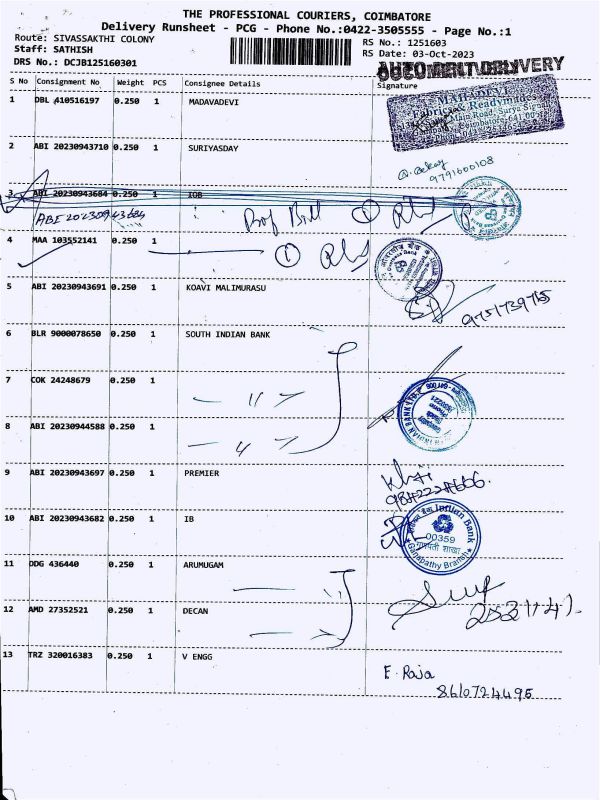 THE PROFESSIONAL COURIERS, COIMBATORE
Delivery Runsheet - PCG - Phone No.:0422-3505555 - Page No.:1
Route: SIVASSAKTHI COLONY
RS No.: 1251603
Staff: SATHISH
RS Date: 03-Oct-2023
DRS No.: DCJB125160301
S No Consignment No Weight PCS Consignee Details Signature
1 DBL 410516197 0.250 1 MADAVADEVI
MAHADEVI
2 ABI 20230943710 0.250 1 SURIYASDAY
9791600108
3 ABI 20230943684 0.250 1 IOB
ABI 20230943684
4 MAA 103552141 0.250 1
5 ABI 20230943691 0.250 1 KOAVI MALIMURASU
9751739765
6 BLR 9000078650 0.250 1 SOUTH INDIAN BANK
7 COK 24248679 0.250 1
8 ABI 20230944588 0.250 1
9 ABI 20230943697 0.250 1 PREMIER
10 ABI 20230943682 0.250 1 IB
Indian Bank
00359
गणपती शाखा
Ganapathy Branch
11 DDG 436440 0.250 1 ARUMUGAM
12 AMD 27352521 0.250 1 DECAN
13 TRZ 320016383 0.250 1 V ENGG
E. Raja
8610724495